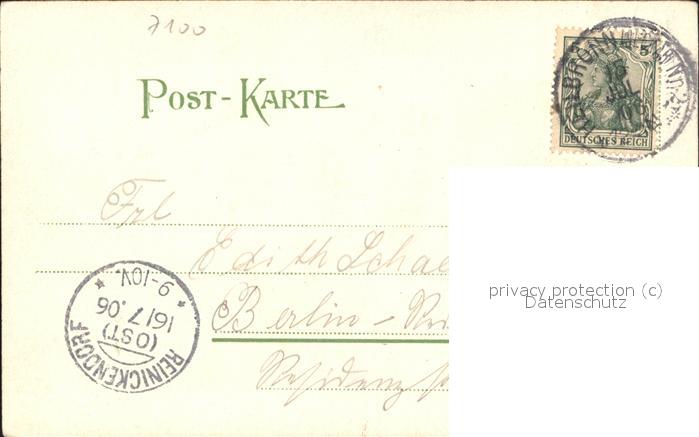 7100
POST-KARTE
5
DEUTSCHES REICH
HEILBRONN
16
JUL
Frl
Edith Schae
Berlin-
Residenzst
privacy protection (c)
Datenschutz
REINICKENDORF
(OST)
16/7.06
* 9-10V. *